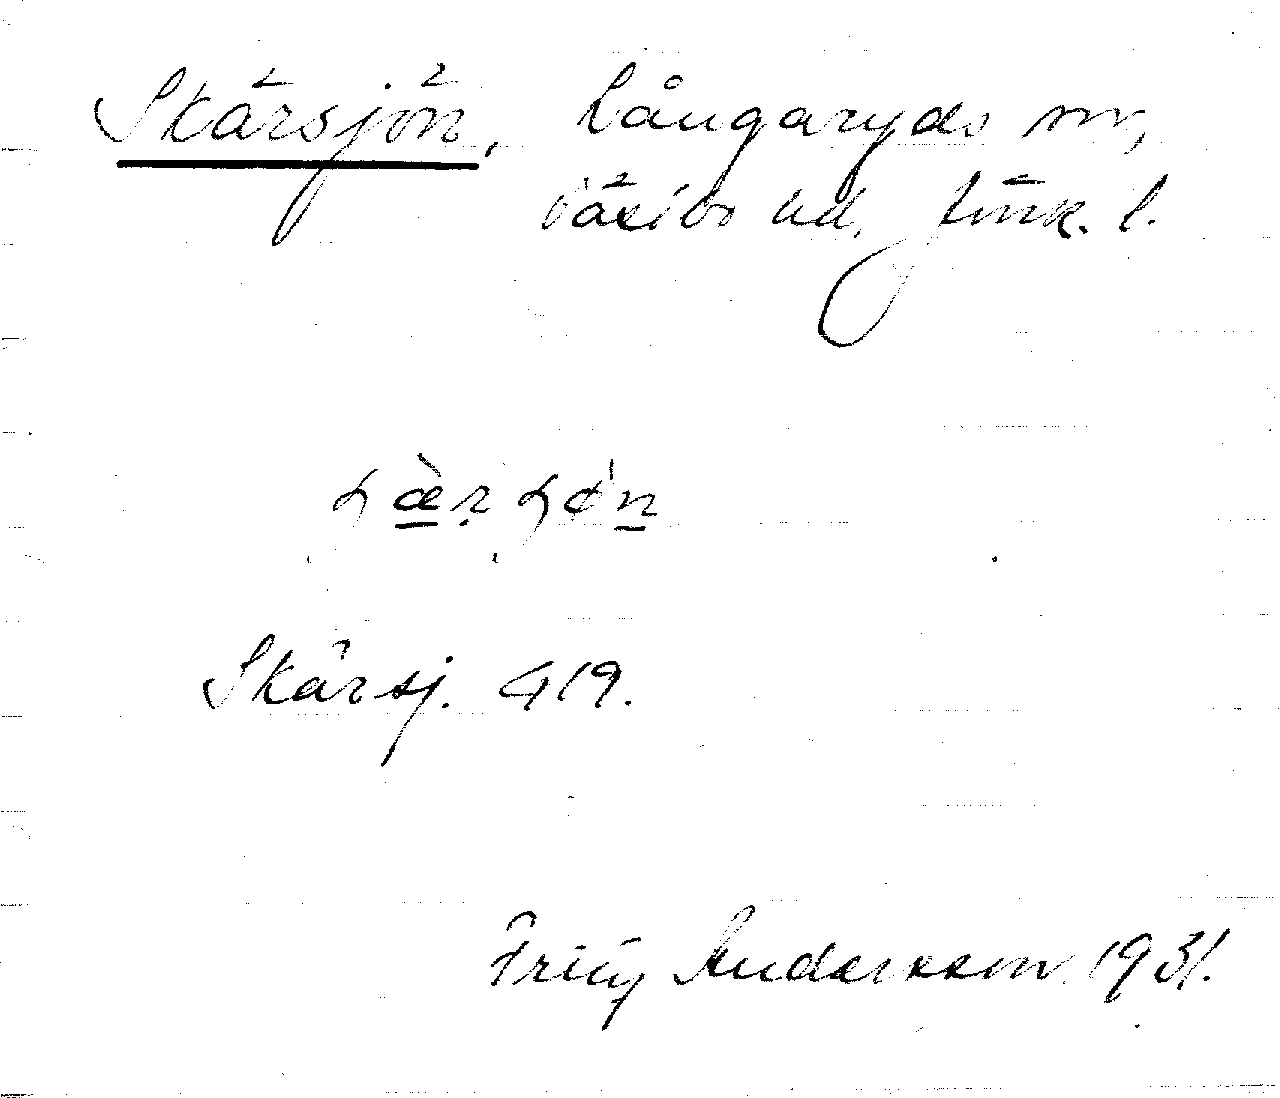 Skärsjön, Långaryds sn,
Västbo hd, Jönk. l.
Skärsj. 419.
Fritz Andersson 1931.